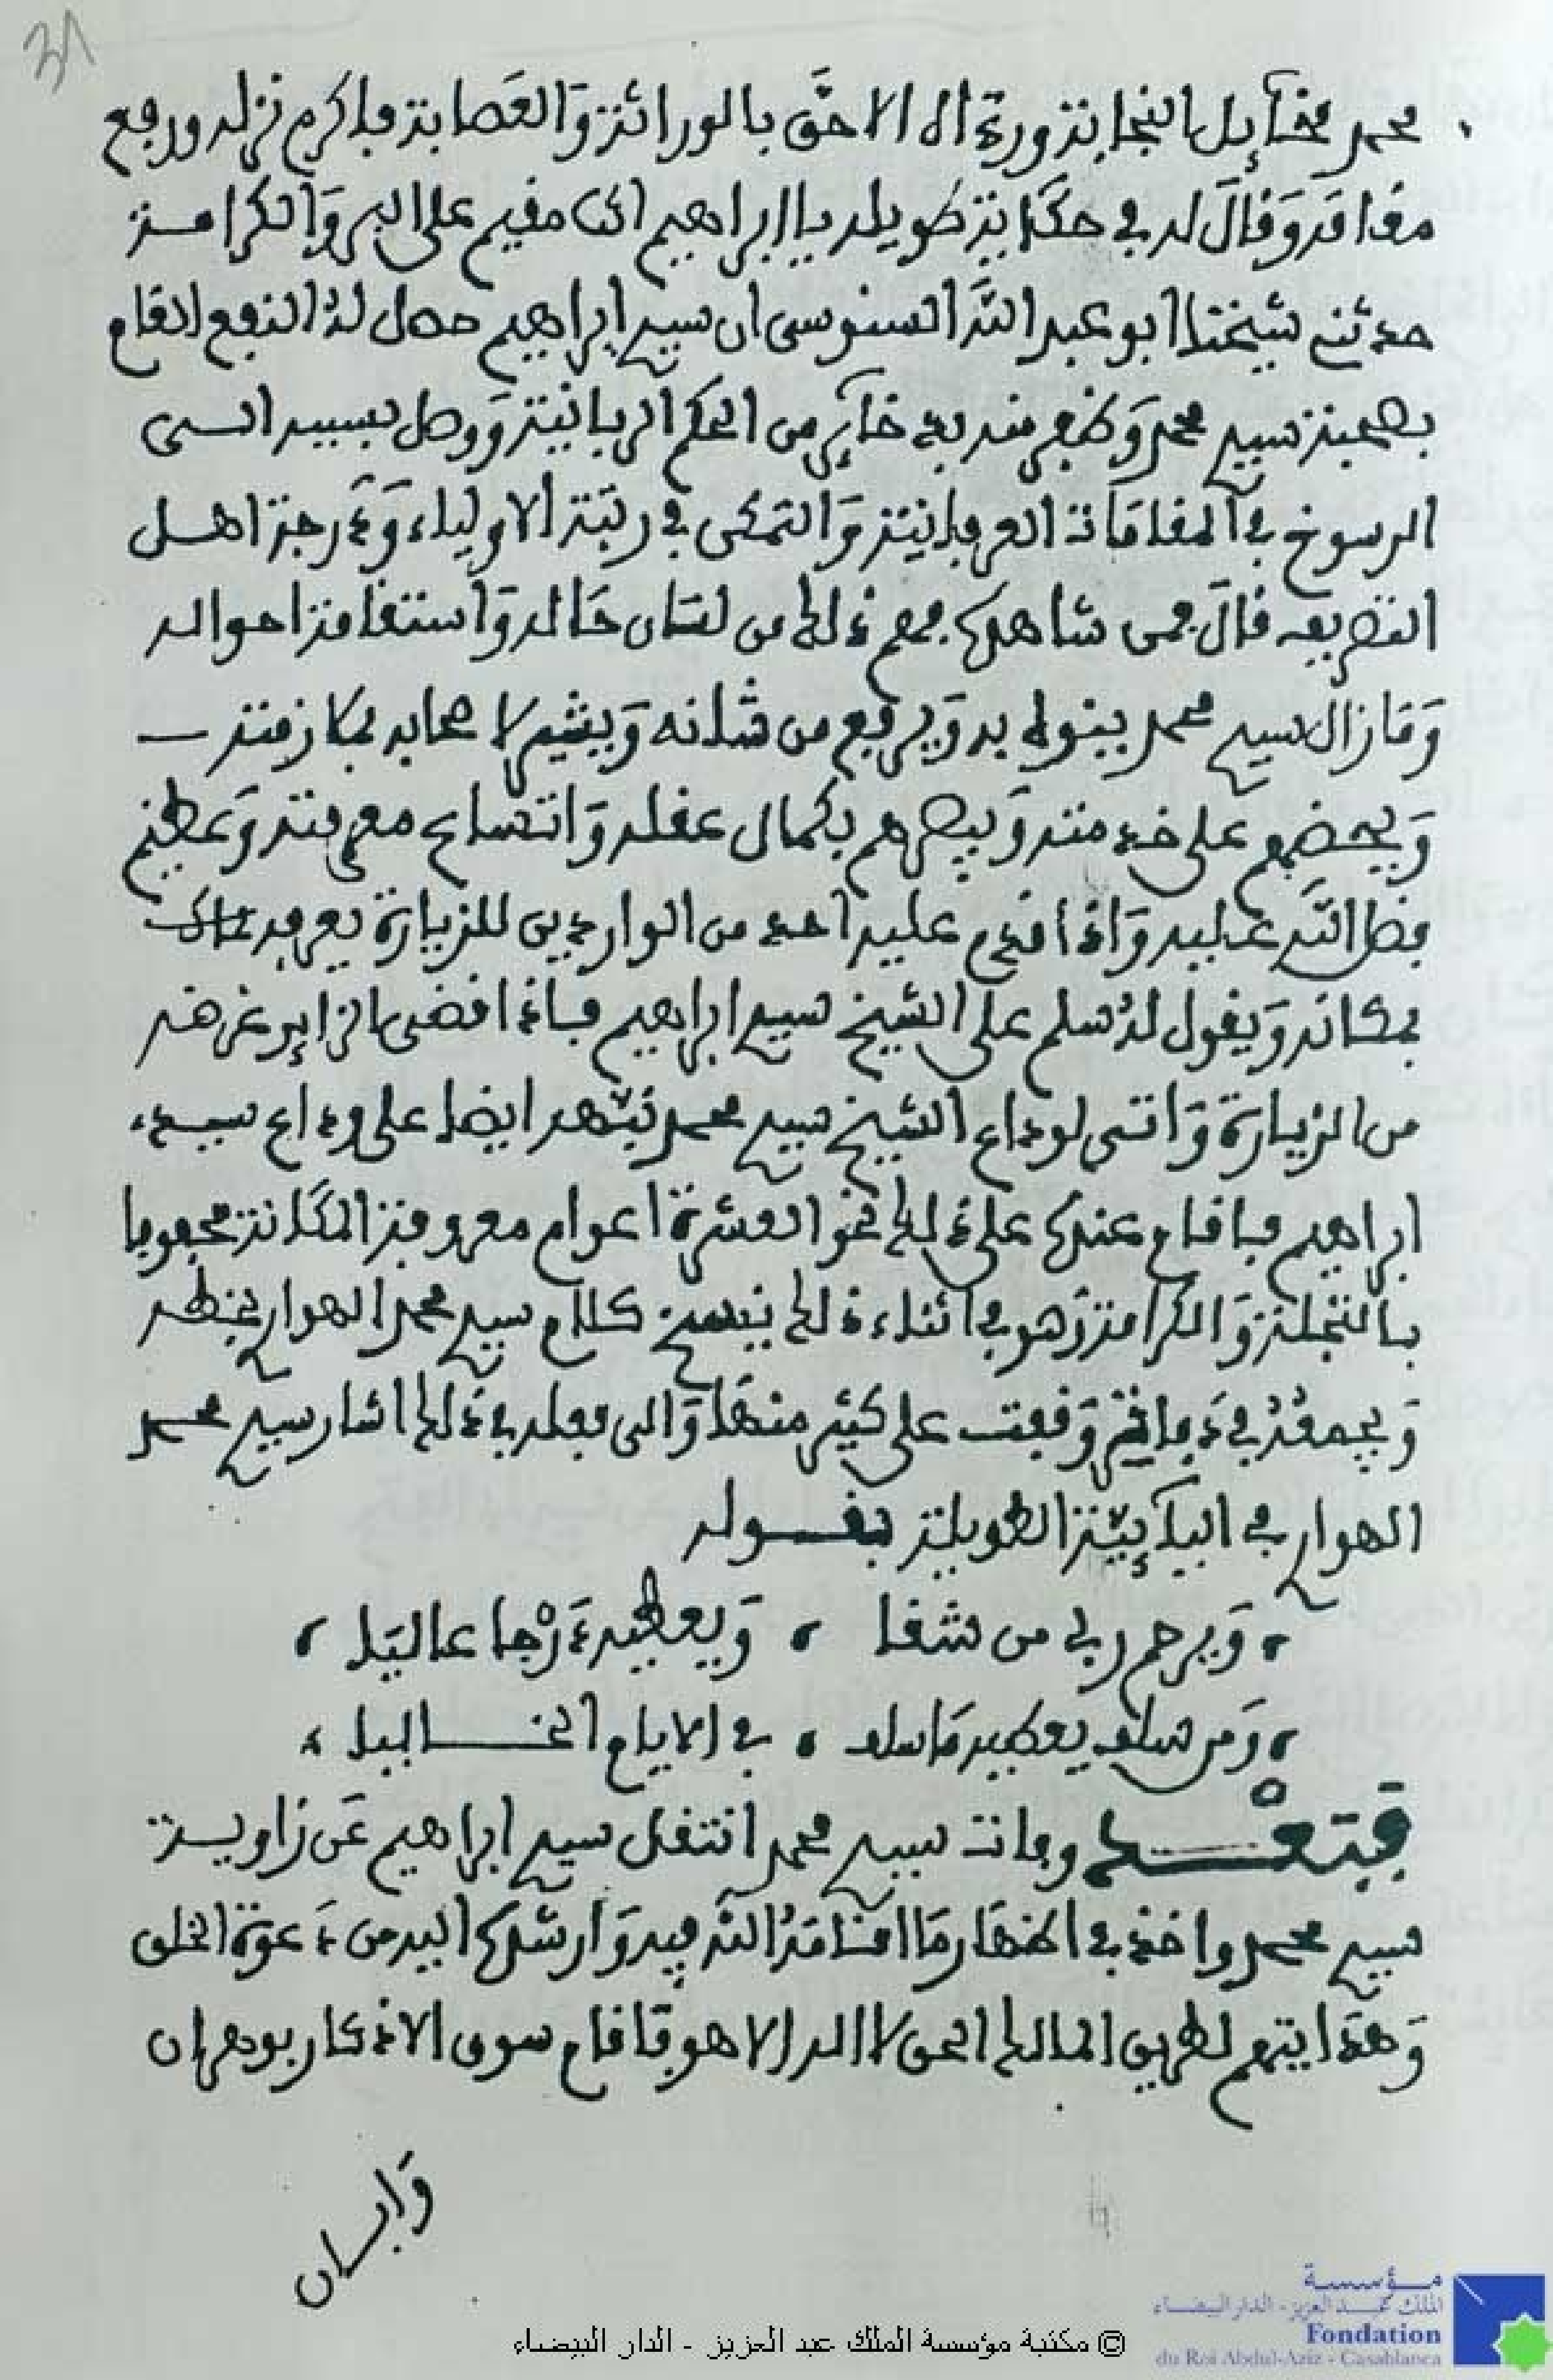 محمد مخآيل النجابة ورءاه الاحق بالوراثة والعصابة فاكرم نزله ورفع
مقامه وقال له في حكاية طويلة يا ابراهيم انك مقيم على البر والكرامة
حدثني شيخنا ابو عبد الله السنوسي ان سيدي ابراهيم حصل له النفع التام
بصحبة سيدي محمد وظفر منه بذخآير من الحكم الربانية ووصل بسببه الى
الرسوخ في المقامات العرفانية والتمكن في رتبة الاولياء ودرجة اهل
التصريف قال فمن شاهدك فهم ذلك من لسان حاله واستقامة احواله
وما زال سيدي محمد ينوه به ويرفع من شانه ويشير لاصحابه بمكانته
ويحضهم على خدمته ويبصرهم بكمال عقله واتساع معرفته وعظيم
فضل الله عليه واذا قدم عليه احد من الواردين للزيارة يعرفه
بمكانه ويقول له سلم على الشيخ سيدي ابراهيم فاذا قضى الزاير غرضه
من الزيارة واتى لوداع الشيخ سيدي محمد نبهه ايضا على وداع سيدي
ابراهيم فاقام عندك على ذلك نحو العشرة اعوام معروف المكانة محفوفا
بالتجلة والكرامة وهو في اثناء ذلك ينسخ كلام سيدي محمد الهواري بخطه
ويجمعه في دفاتر وقفت على كثير منها والى فعله في ذلك اشار سيدي محمد
الهواري في اليآيية الطويلة بقوله
ويرحم ربي من شفا ، ويعطيه درجا عاليا ،
ومن سلف يعطيه ما سلف ، في الايام الخاليا ،
فبعد وفات سيدي محمد انتقل سيدي ابراهيم عن زاوية
سيدي محمد واخذ في اظهار ما اقامه الله فيه وارشدك اليه من دعوة الخلق
وهدايتهم لطريق المالك الحق لا اله الا هو فاقام سوى الاذكار بوهران
وابان
31
مؤسسة
الملك عبد العزيز - الدار البيضاء
Fondation
du Roi Abdul-Aziz - Casablanca
© مكتبة مؤسسة الملك عبد العزيز - الدار البيضاء